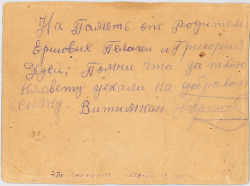 На Память от родителей
Ершовых Пелагеи и Григория
Дуся, Помни что за твою
клевету уехали на добраво
ссылку. Витимкан. Ершов